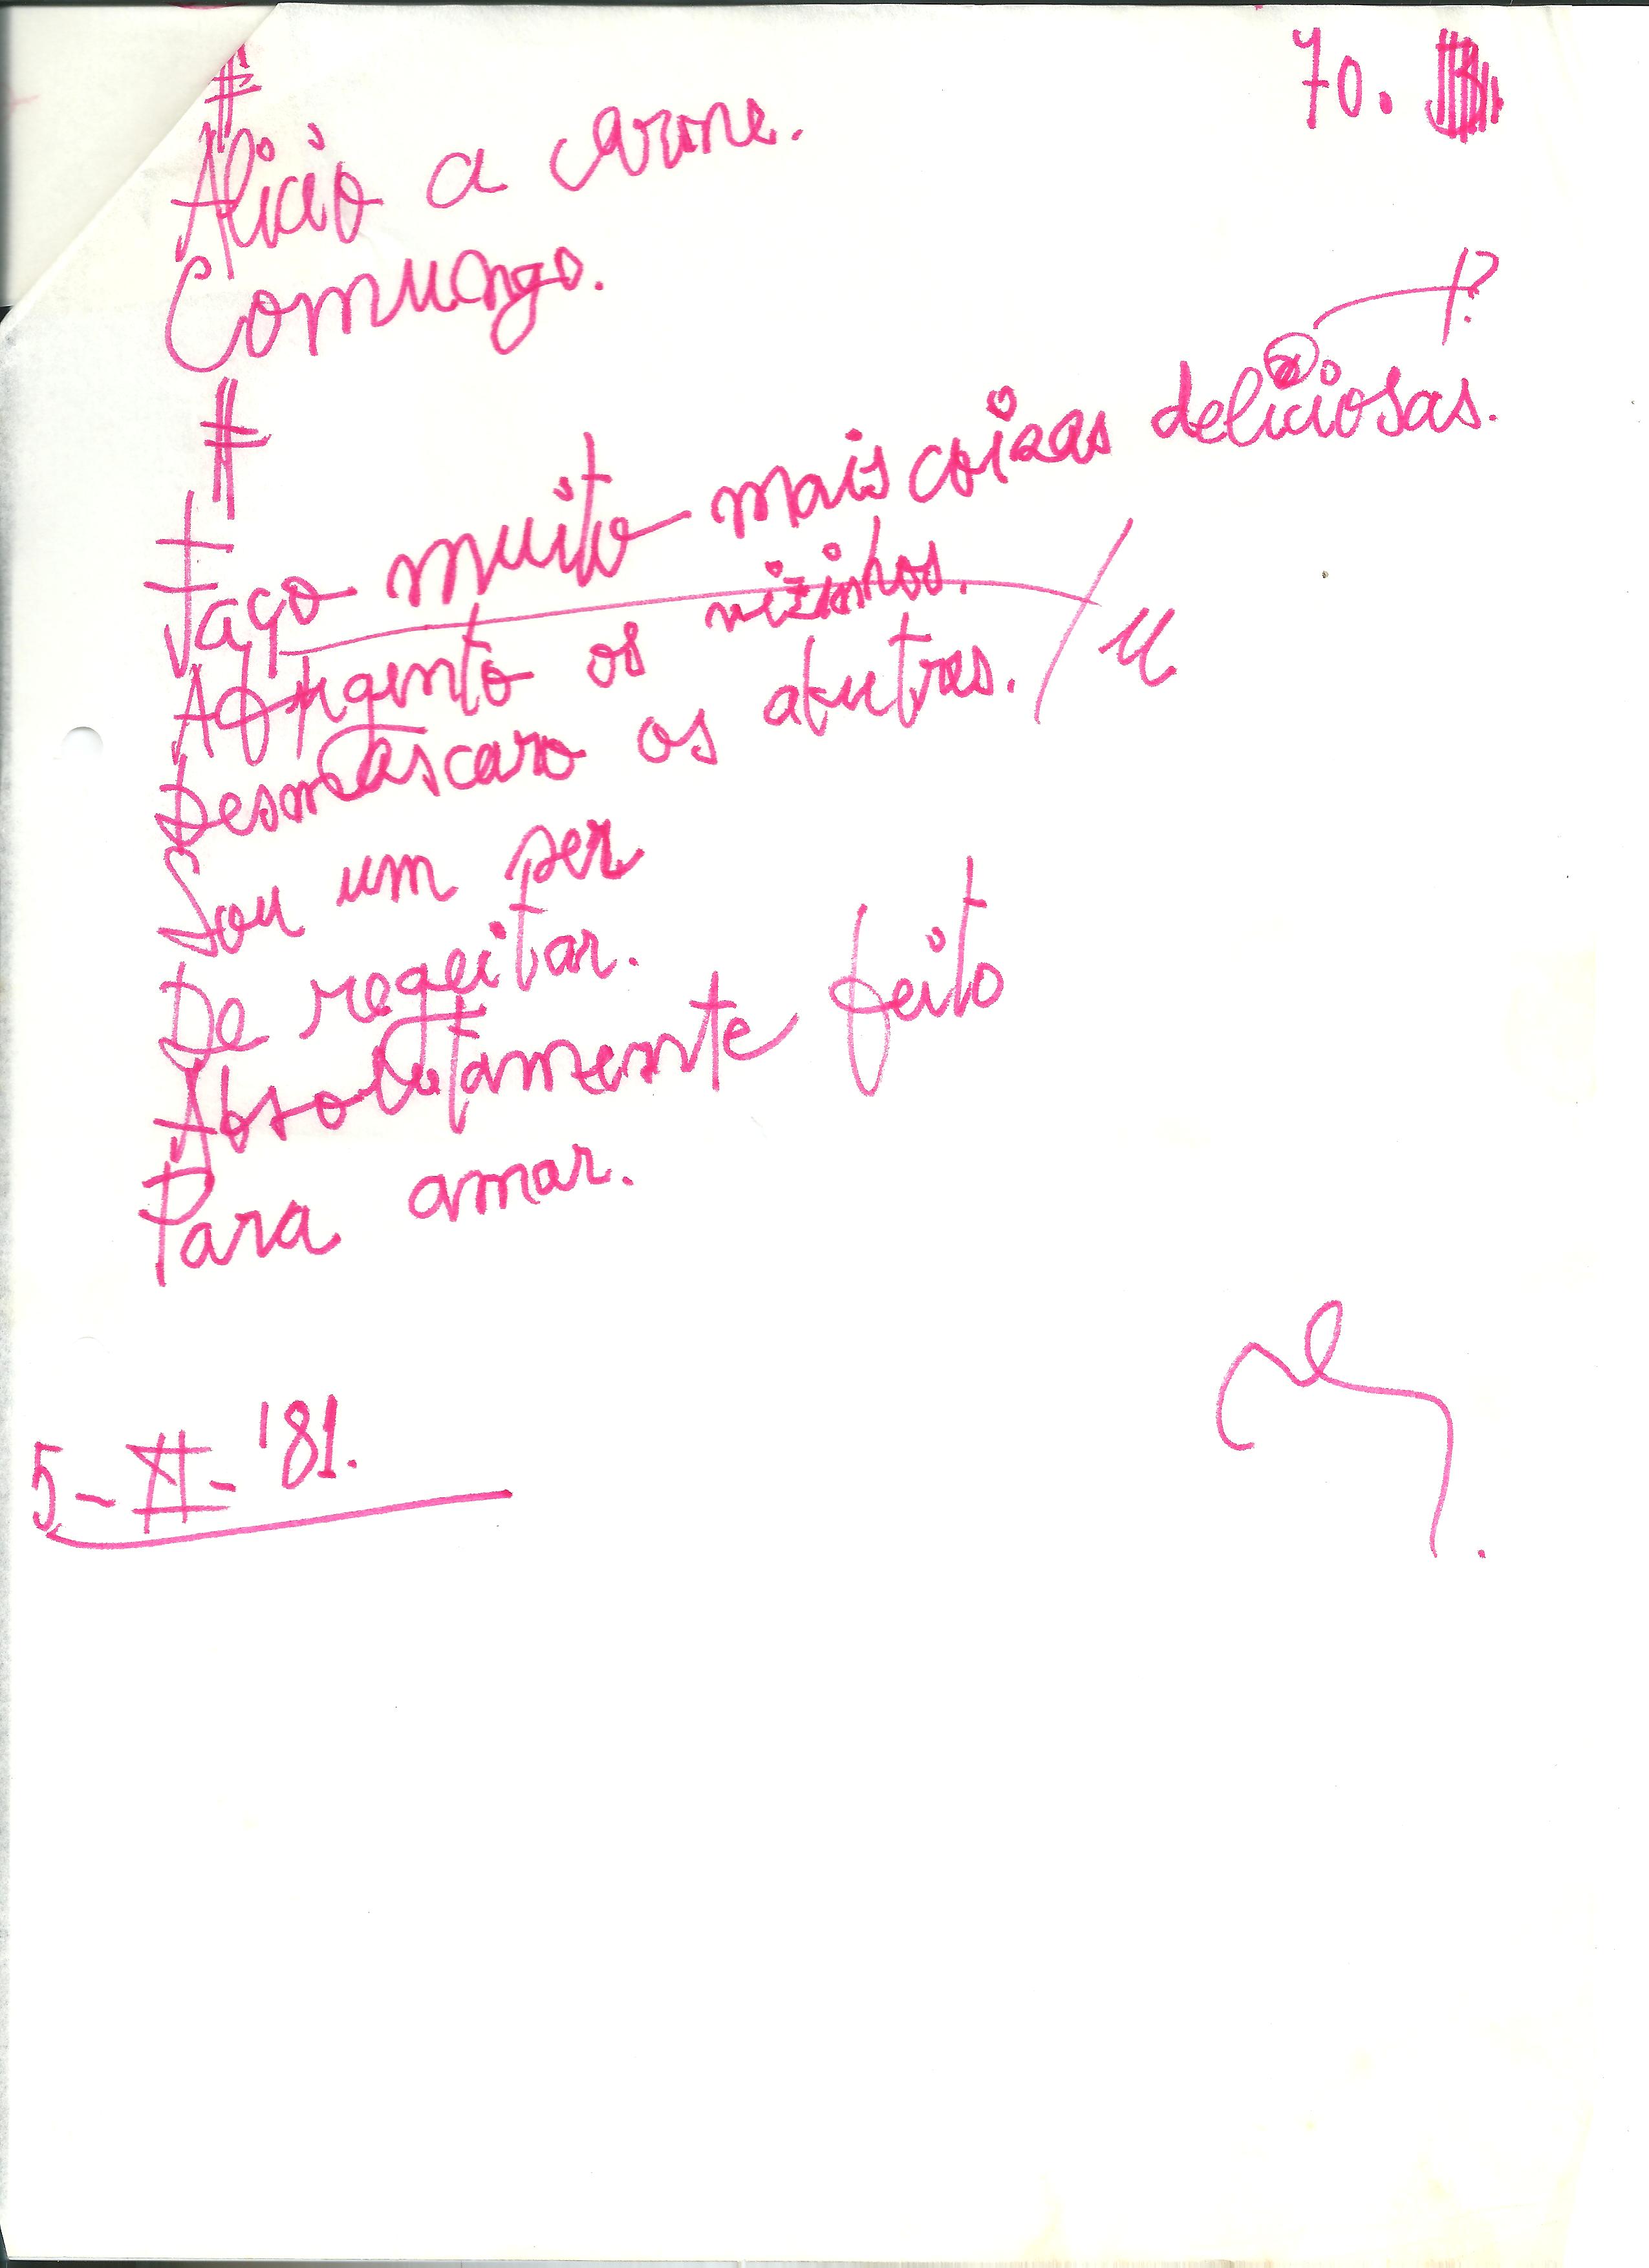 70.
#
Alicio a carne.
Comungo.
#
Faço muito mais coizas deliciosas.
Afugento os vizinhos.
Desmascaro os abutres. / u
Sou um ser
De rejeitar.
Absolutamente feito
Para amar.
5-XI-'81.